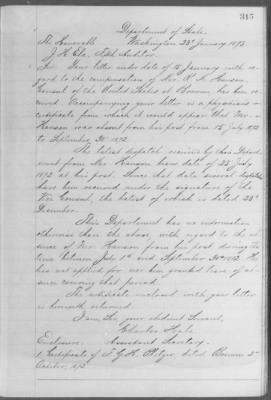 315
Department of State,
The Honorable Washington 23d January 1873
J. H. Ela, Fifth Auditor.
Sir: Your letter under date of 15 January with re-
gard to the compensation of Mr. Hanson
Consul of the United States at Bremen has been re-
ceived. Accompanying your letter is a physician's
certificate from which it would appear that Mr.
Hanson was absent from his post from 15 July 1872
to September 30th 1872.
The latest dispatch received by this Depart-
ment from Mr. Hanson bears date of 23d July
1872 at his post. Since that date several dispatches
have been received under the signature of the
Vice Consul, the latest of which is dated 23d
December.
This Department has no information
otherwise than the above, with regard to the ab-
sence of Mr. Hanson from his post during the
time between July 1st and September 30th 1872. He
has not applied for nor been granted leave of ab-
sence covering that period.
The certificate enclosed with your letter
is herewith returned.
I am, Sir, your obedient Servant,
Charles Hale
Enclosure: Assistant Secretary.
1. Certificate of dated Bremen 5th
October, 1872